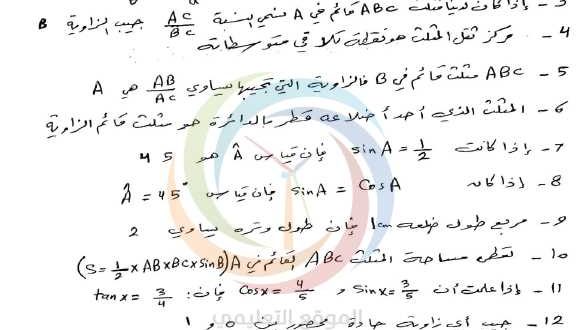 3 - إذا كان لدينا مثلث ABC قائم في A نسمي النسبة AC/BC جيب الزاوية B
4 - مركز ثقل المثلث هو نقطة تلاقي متوسطاته
5 - ABC مثلث قائم في B فالزاوية التي تجيبها يساوي AB/AC هي A
6 - المثلث الذي أحد أضلاعه قطر بالدائرة هو مثلث قائم الزاوية
7 - إذا كانت sin A = 1/2 فإن قياس Â هو 45
8 - إذا كان sin A = Cos A فإن قياس Â = 45°
9 - مربع طول ضلعه 1cm فإن طول وتره يساوي 2
10 - تعطى مساحة المثلث ABC القائم في A (S = 1/2 × AB × BC × sin B)
11 - إذا علمت أن sin x = 3/5 و Cos x = 4/5 فإن: tan x = 3/4
12 - جيب أي زاوية حادة محصور بين 0 و 1
الموقع التعليمي